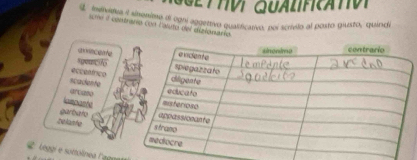 AGGETTIVI QUALIFICATIVI
Individua il sinonimo di ogni aggettivo qualificativo, poi scrivilo al posto giusto, quindi
scrivi il contrario con l'aiuto del dizionario.
avvincente
sgualcito
eccentrico
scadente
arcano
lampante
garbato
zelante
sinonimo
contrario
evidente lampante
spiegazzato
diligente
educato
misterioso
appassionante
strano
mediocre
Leggi e sottolinea